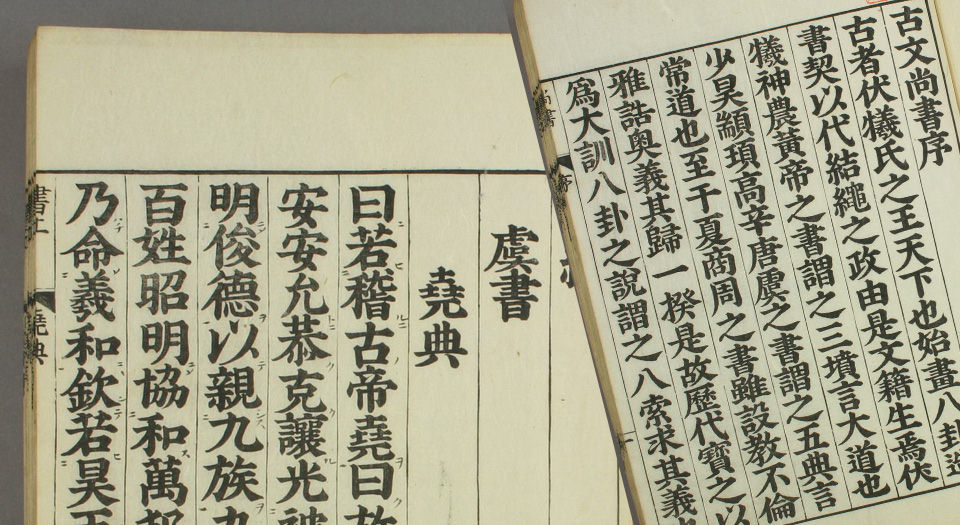 古文尚書序
古者伏犧氏之王天下也始畫八卦造
書契以代結繩之政由是文籍生焉伏
犧神農黃帝之書謂之三墳言大道也
少昊顓頊高辛唐虞之書謂之五典言
常道也至于夏商周之書雖設教不倫
雅誥奧義其歸一揆是故歷代寶之以
爲大訓八卦之說謂之八索求其義
虞書
堯典
曰若稽古帝堯曰
安安允恭克讓光被
明俊德以親九族九
百姓昭明協和萬
乃命羲和欽若昊
堯典